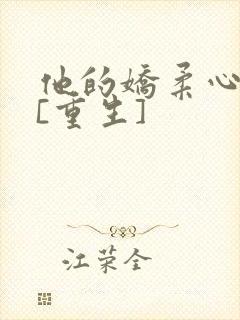 他的娇柔心
[重生]
江荣全